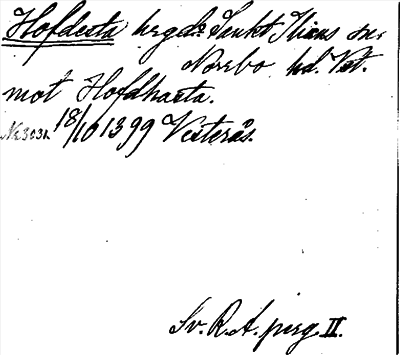 Hofdesta hrgd: Sankt Ilians sn.
Norrbo hd. Vst.
mot Hofdhæsta.
No 3031. 18/10 1399 Vesterås.
Sv. R. A. perg. II.